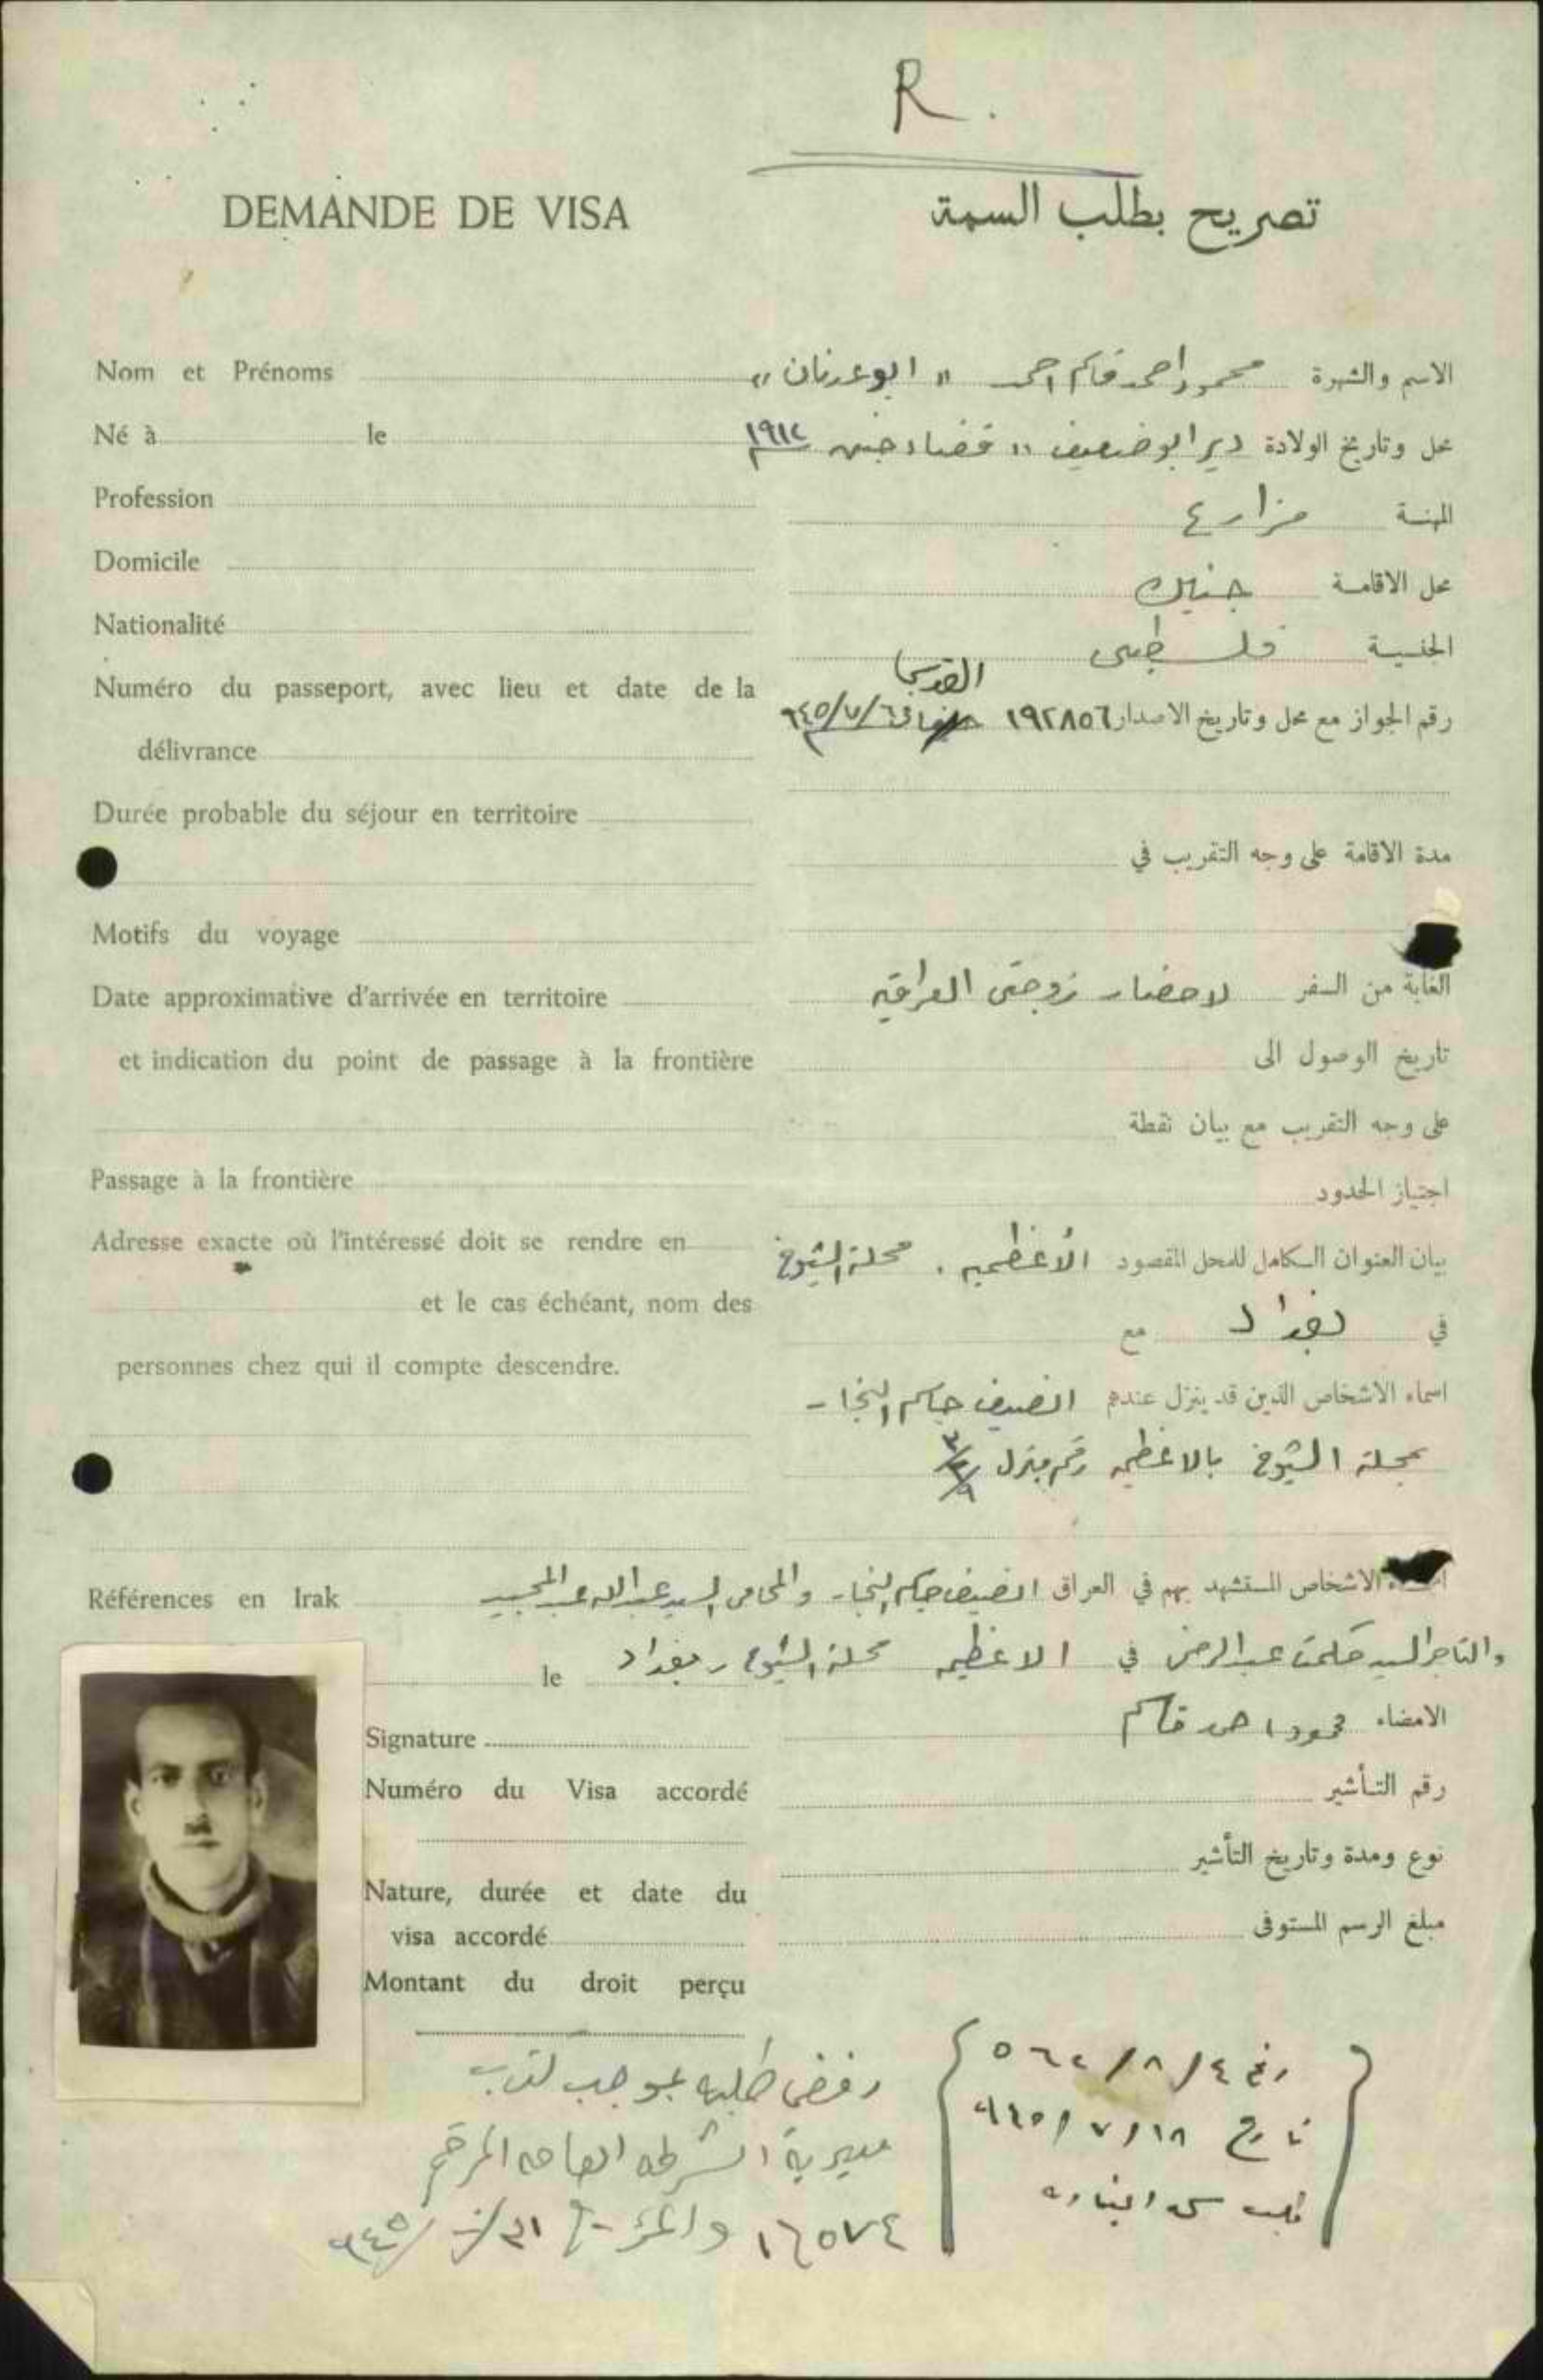 R.
DEMANDE DE VISA
تصريح بطلب السمة
Nom et Prénoms
الاسم والشهرة محمود احمد قاسم احمد « ابو عدنان »
Né à le
محل وتاريخ الولادة دير ابو ضعيف " قضاء جنين ١٩١٢
Profession
المهنة مزارع
Domicile
محل الاقامة جنين
Nationalité
الجنسية فلسطيني
Numéro du passeport, avec lieu et date de la
délivrance
القدس
رقم الجواز مع محل وتاريخ الاصدار ١٩٢٨٥٦
Durée probable du séjour en territoire
مدة الاقامة على وجه التقريب في
Motifs du voyage
الغاية من السفر لاحضار زوجتي العراقيه
Date approximative d'arrivée en territoire
et indication du point de passage à la frontière
تاريخ الوصول الى
على وجه التقريب مع بيان نقطة
Passage à la frontière
اجتياز الحدود
Adresse exacte où l'intéressé doit se rendre en
et le cas échéant, nom des
personnes chez qui il compte descendre.
بيان العنوان الكامل للمحل المقصود الأعظميه . محلة الشيوخ
في بغداد مع
اسماء الاشخاص الذين قد ينزل عندهم جاسم النجار
بمحلة الشيوخ بالاعظميه رقم منزل
Références en Irak
الاشخاص المستشهد بهم في العراق جاسم النجار والمحامي السيد عبدالله عبد المجيد
والتاجر السيد حكمت عبد الرحمن في الاعظميه محلة الشيوخ بغداد
le
Signature
الامضاء محمود احمد قاسم
Numéro du Visa accordé
رقم التأشير
Nature, durée et date du
visa accordé
نوع ومدة وتاريخ التأشير
Montant du droit perçu
مبلغ الرسم المستوفى
رقم ٥٦٢/٨/٤
تاريخ ٩٤٥/٧/١٨
رفض طلبه بموجب كتاب
مديرية الشرطه العامه المرقم
١٦٥٧٤ والمؤرخ